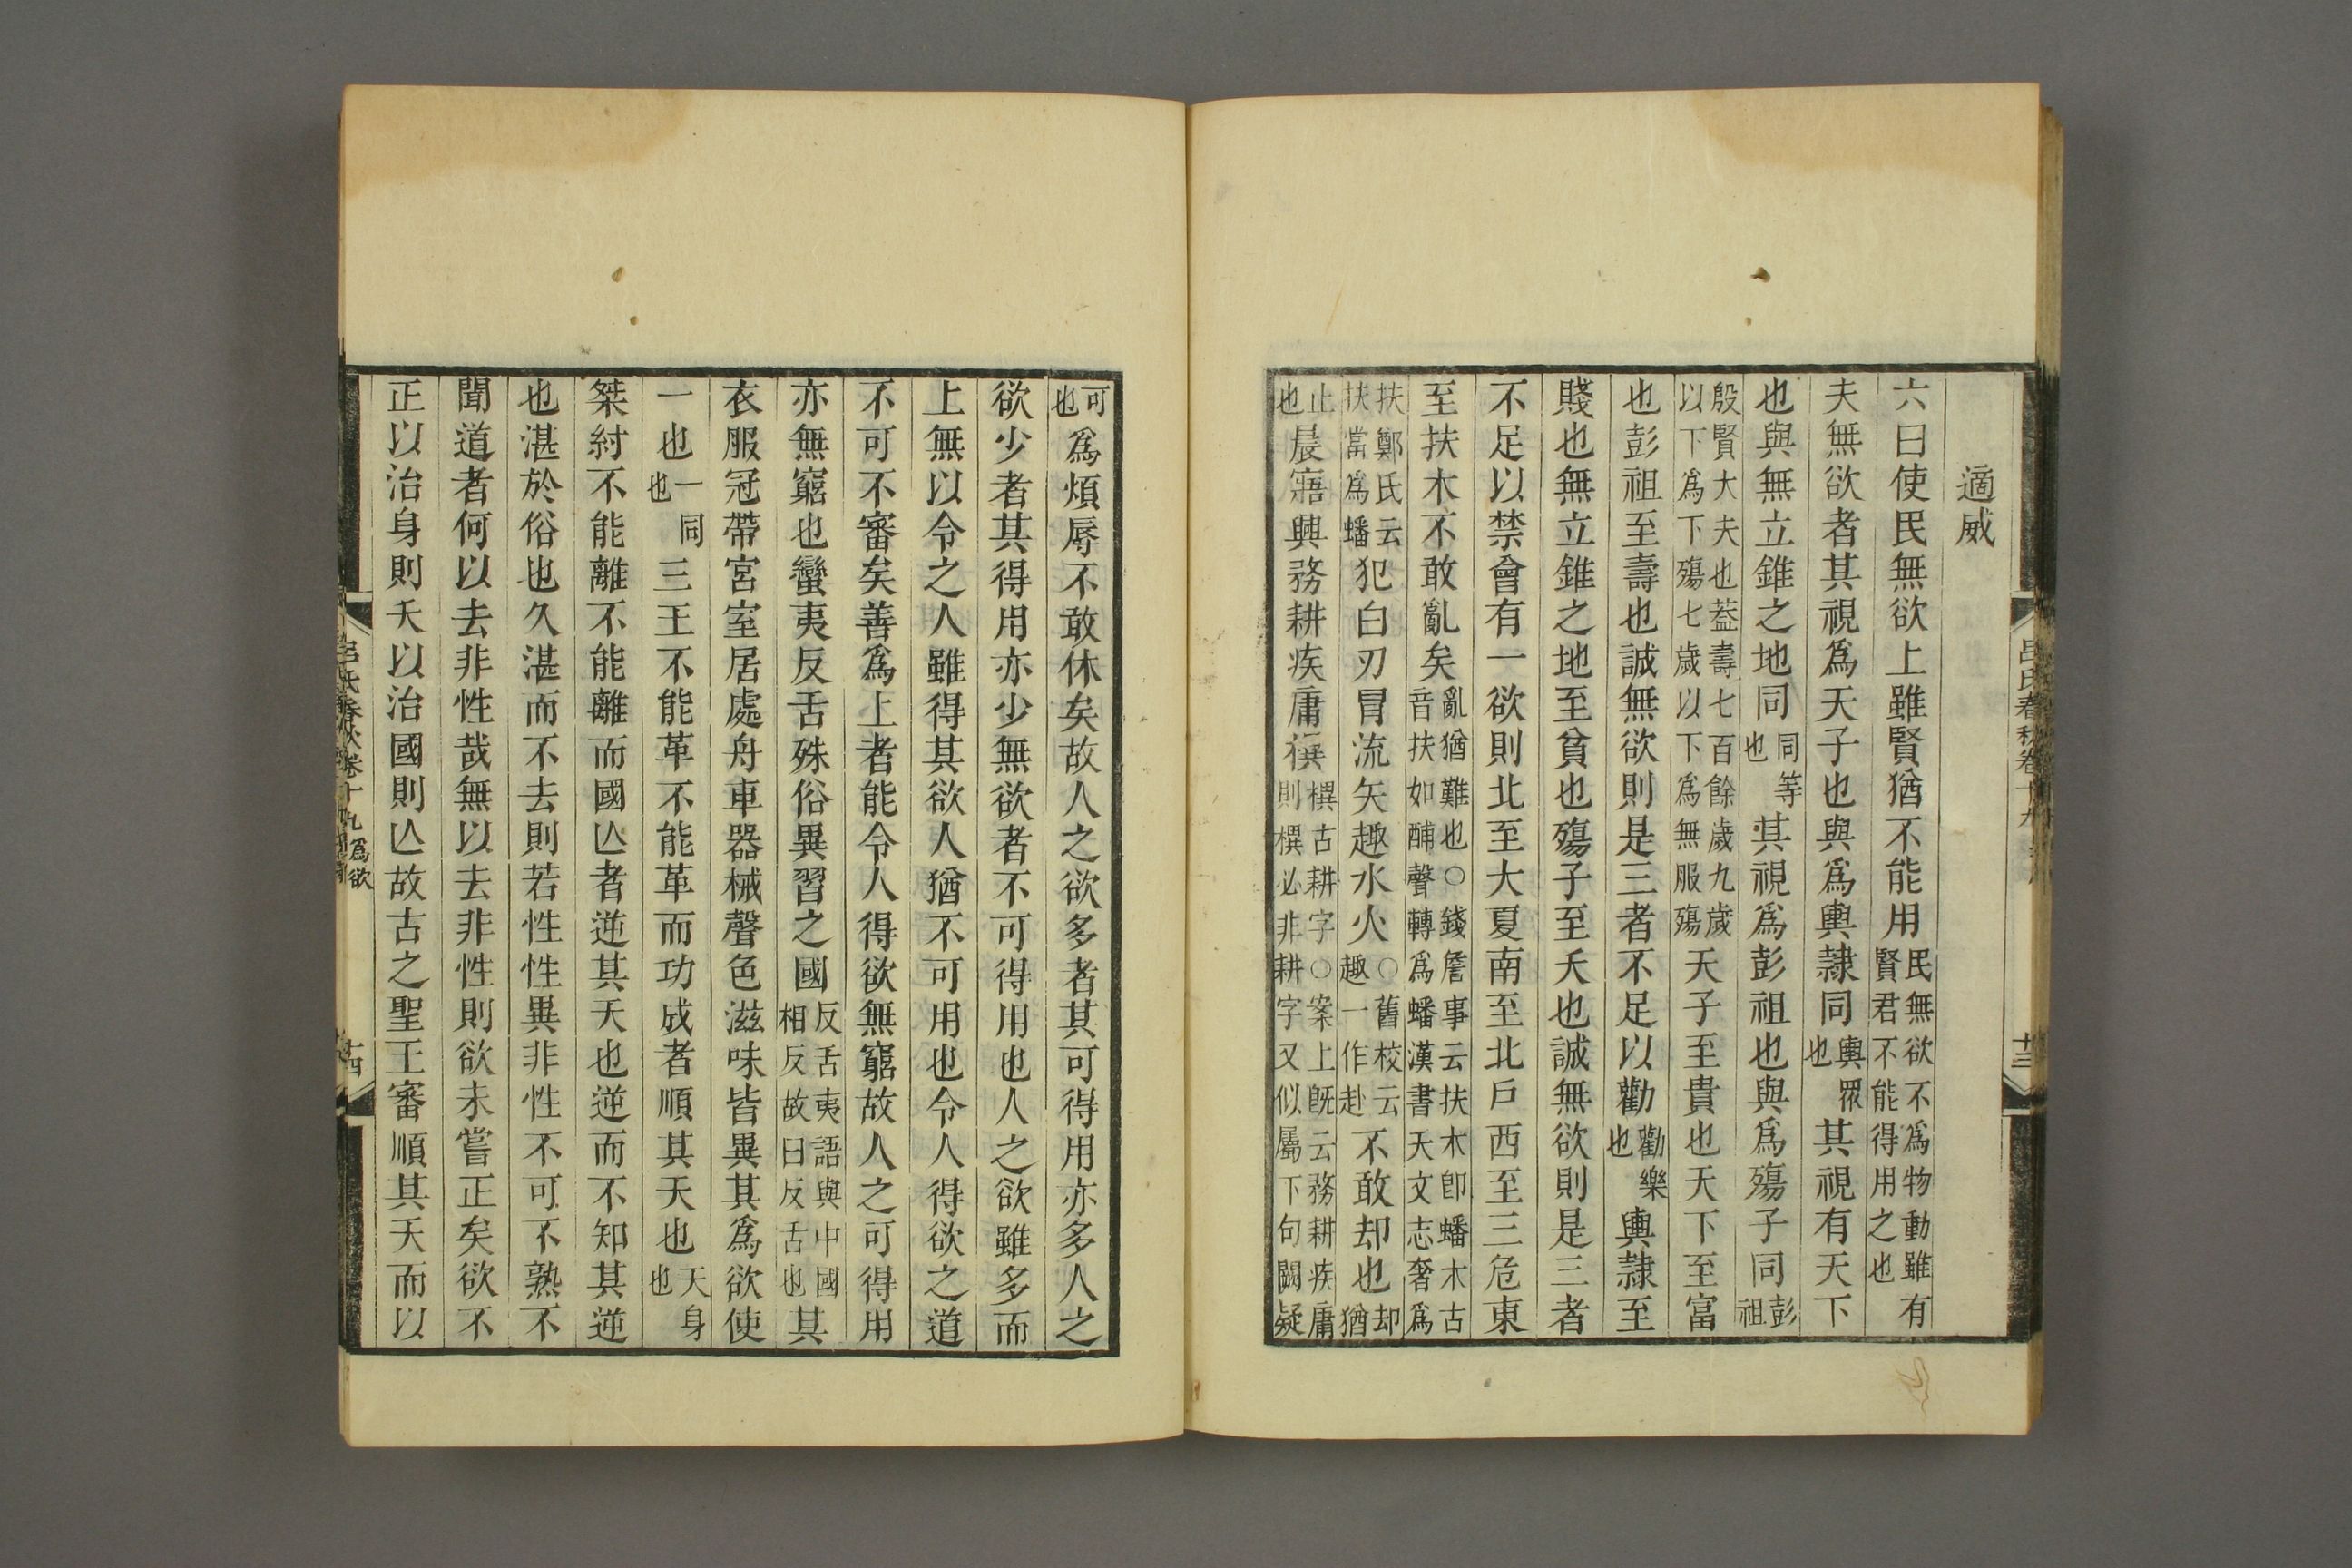 適威
六曰使民無欲上雖賢猶不能用民無欲不爲物動雖有賢君不能得用之也
夫無欲者其視爲天子也與爲輿隷同輿衆也其視有天下
也與無立錐之地同同等也其視爲彭祖也與爲殤子同彭祖
殷賢大夫也葢壽七百餘歲九歲以下爲下殤七歲以下爲無服殤天子至貴也天下至富
也彭祖至壽也誠無欲則是三者不足以勸勸樂也輿隷至
賤也無立錐之地至貧也殤子至夭也誠無欲則是三者
不足以禁會有一欲則北至大夏南至北戶西至三危東
至扶木不敢亂矣亂猶難也○錢詹事云扶木卽蟠木古音扶如酺聲轉爲蟠漢書天文志奢爲
扶鄭氏云扶當爲蟠犯白刃冒流矢趣水火○舊校云趣一作赴不敢却也却猶
止也晨寤興務耕疾庸𣚣𣚣古耕字○案上旣云務耕疾庸則𣚣必非耕字又似屬下句闕疑
呂氏春秋卷十九
十三
可也爲煩辱不敢休矣故人之欲多者其可得用亦多人之
欲少者其得用亦少無欲者不可得用也人之欲雖多而
上無以令之人雖得其欲人猶不可用也令人得欲之道
不可不審矣善爲上者能令人得欲無窮故人之可得用
亦無窮也蠻夷反舌殊俗異習之國反舌夷語與中國相反故曰反舌也其
衣服冠帶宮室居處舟車器械聲色滋味皆異其爲欲使
一也一同也三王不能革不能革而功成者順其天也天身也
桀紂不能離不能離而國亾者逆其天也逆而不知其逆
也湛於俗也久湛而不去則若性性異非性不可不熟不
聞道者何以去非性哉無以去非性則欲未嘗正矣欲不
正以治身則夭以治國則亾故古之聖王審順其天而以
呂氏春秋卷十九爲欲
十四